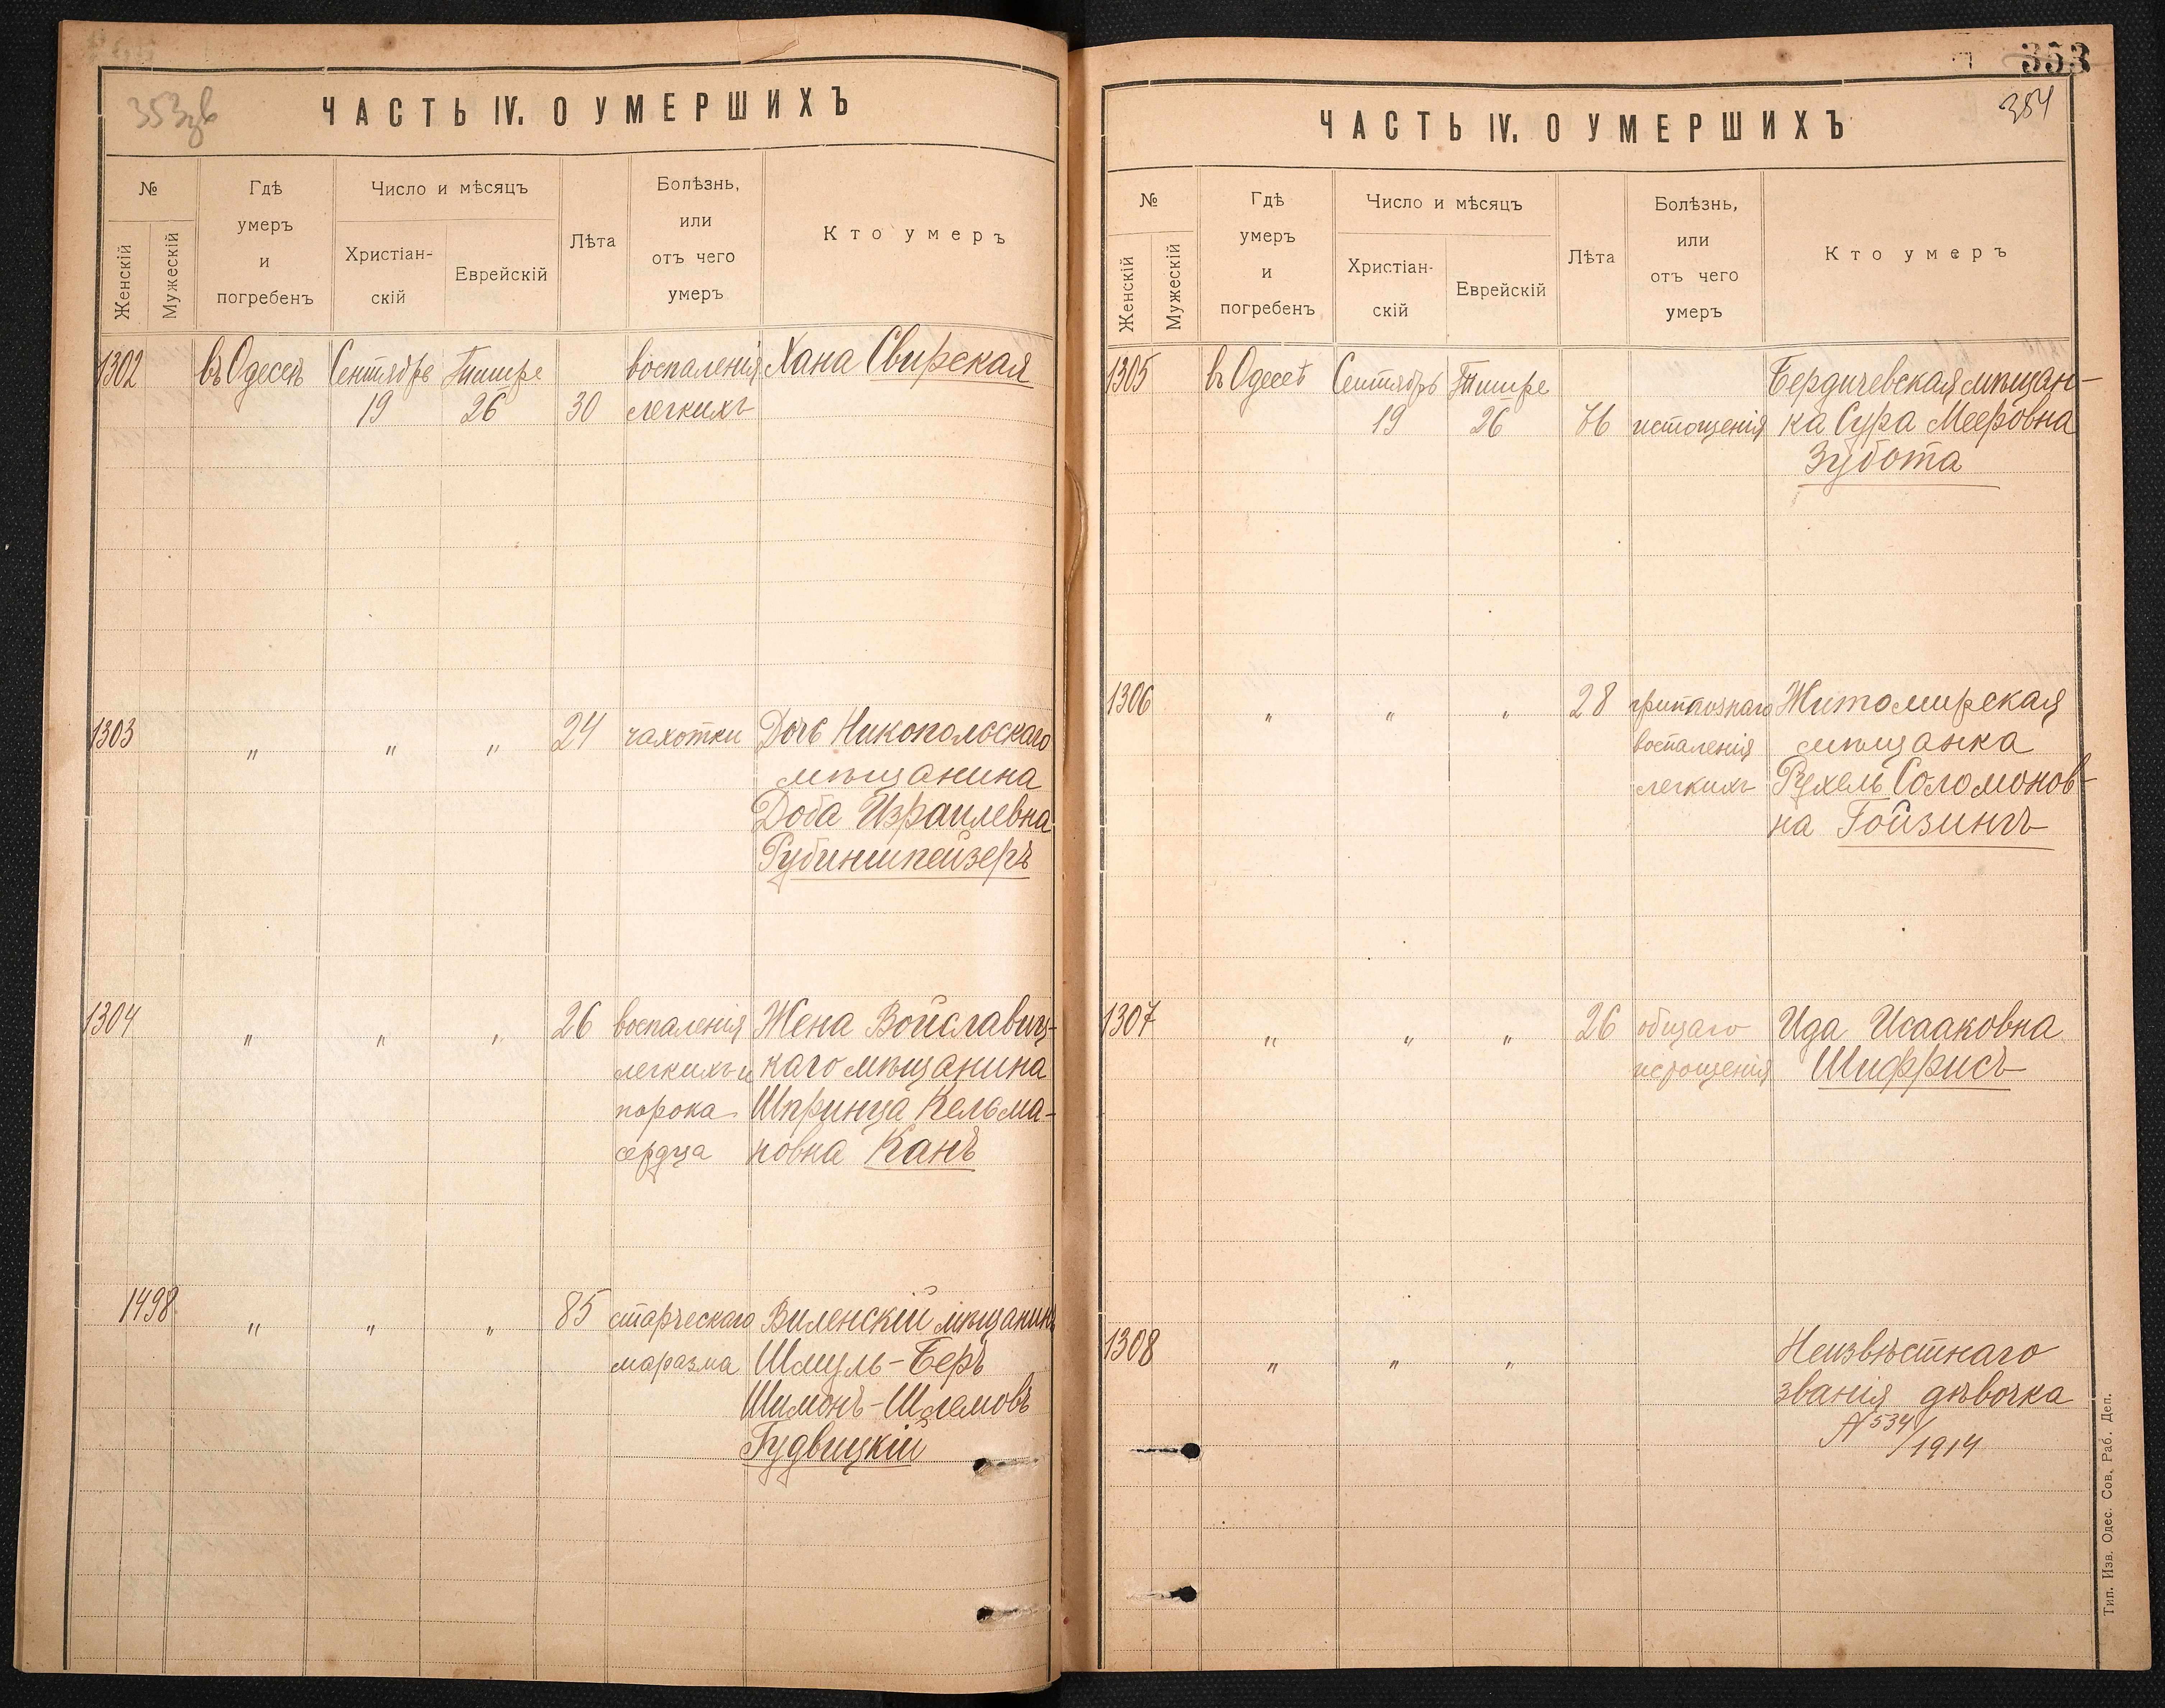 353зв
ЧАСТЬ IV. О УМЕРШИХЪ
№
Женскій
Мужескій
Гдѣ
умеръ
и
погребенъ
Число и мѣсяцъ
Христіан-
скій
Еврейскій
Лѣта
Болѣзнь,
или
отъ чего
умеръ
Кто умеръ
1302 въ Одессѣ Сентябрь Тишре воспаленія Хана Свирская
19 26 30 легкихъ
1303 " " " 24 чахотки Дочь Никопольскаго
мѣщанина
Доба Израилевна
Рубиншпейзеръ
1304 " " " 26 воспаленія Жена Войславиц-
легкихъ и каго мѣщанина
порока Шпринца Кельма-
сердца новна Канъ
1498 " " " 85 старческаго Виленскій мѣщанинъ
маразма Шмуль-Беръ
Шимонъ-Шлемовъ
Гудвицкій
353
354
ЧАСТЬ IV. О УМЕРШИХЪ
№
Женскій
Мужескій
Гдѣ
умеръ
и
погребенъ
Число и мѣсяцъ
Христіан-
скій
Еврейскій
Лѣта
Болѣзнь,
или
отъ чего
умеръ
Кто умеръ
1305 въ Одессѣ Сентябрь Тишре Бердичевская мѣщан-
19 26 76 истощенія ка Сура Мееровна
Зубота
1306 " " " 28 гриппознаго Житомирская
воспаленія мѣщанка
легкихъ Рухель Соломонов-
на Гойзингъ
1307 " " " 26 общаго Ида Исааковна
истощенія Шиффрисъ
1308 " " " Неизвѣстнаго
званія дѣвочка
№ 534/
/1914
Тип. Изв. Одес. Сов. Раб. Деп.